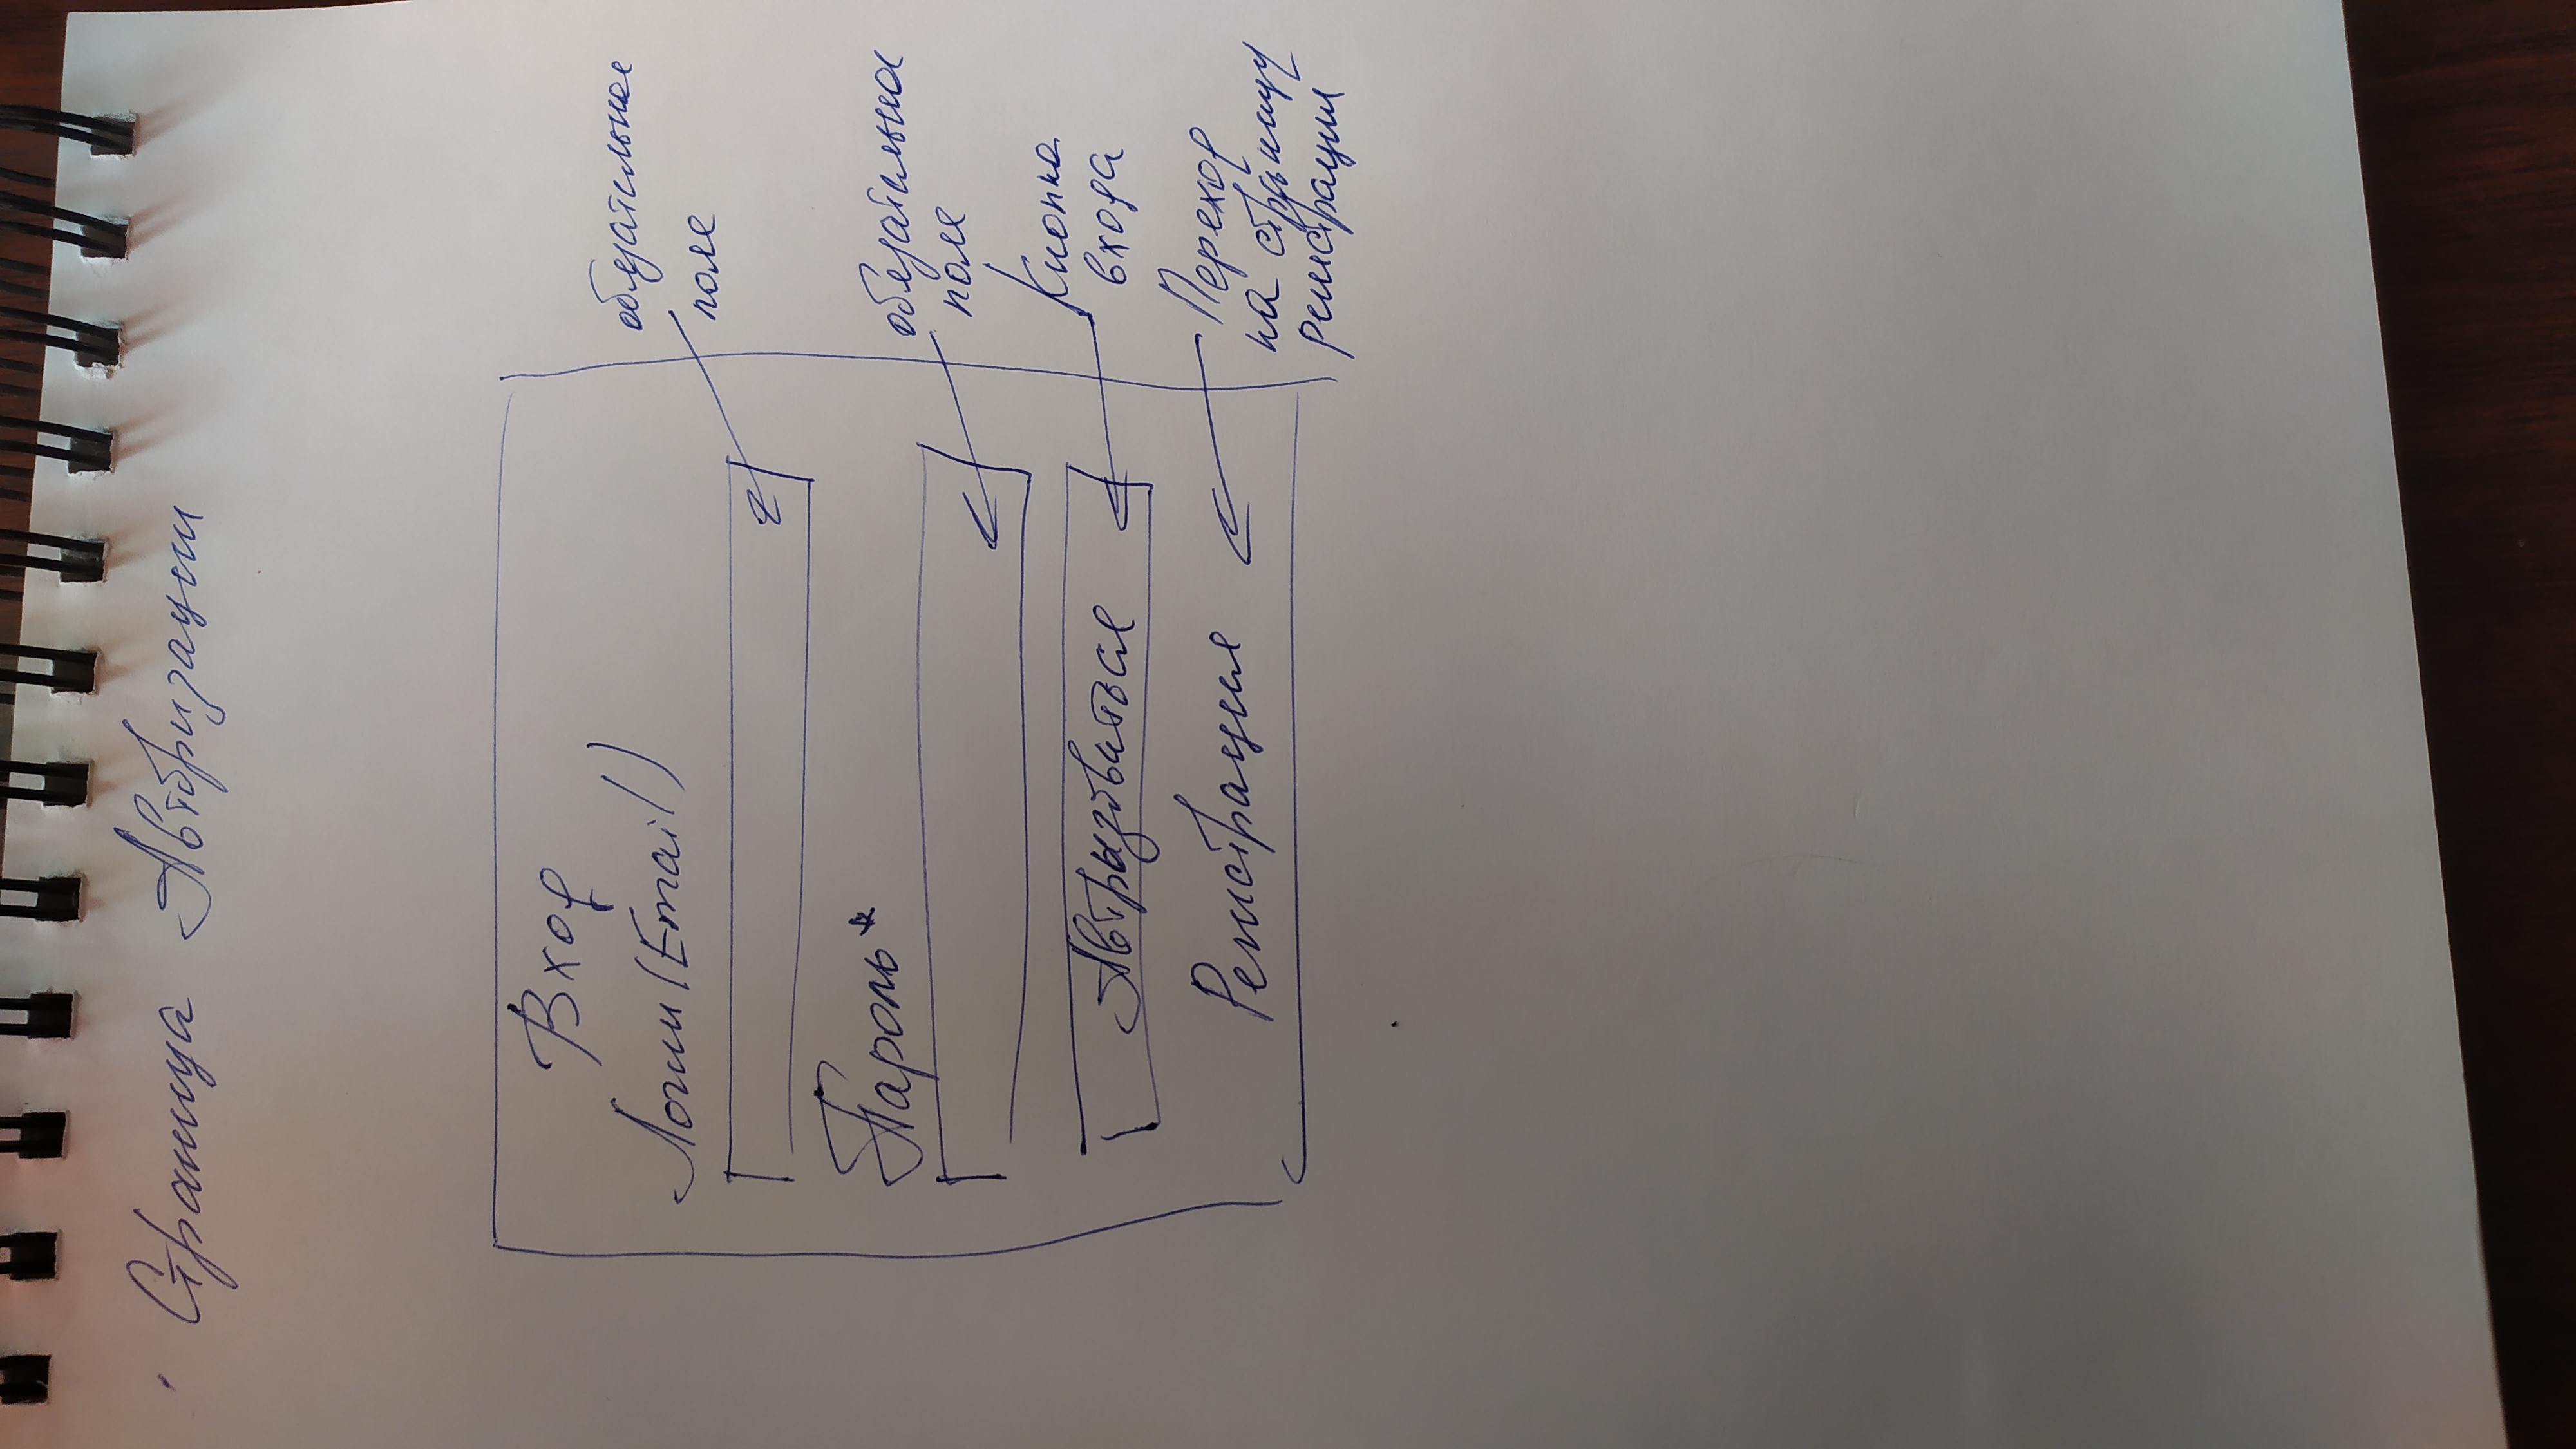 Страница Авторизации
Вход
Логин (Email)
обязательное
поле
Пароль*
обязательное
поле
Авторизоваться
Кнопка
входа
Регистрация
Переход
на страницу
регистрации